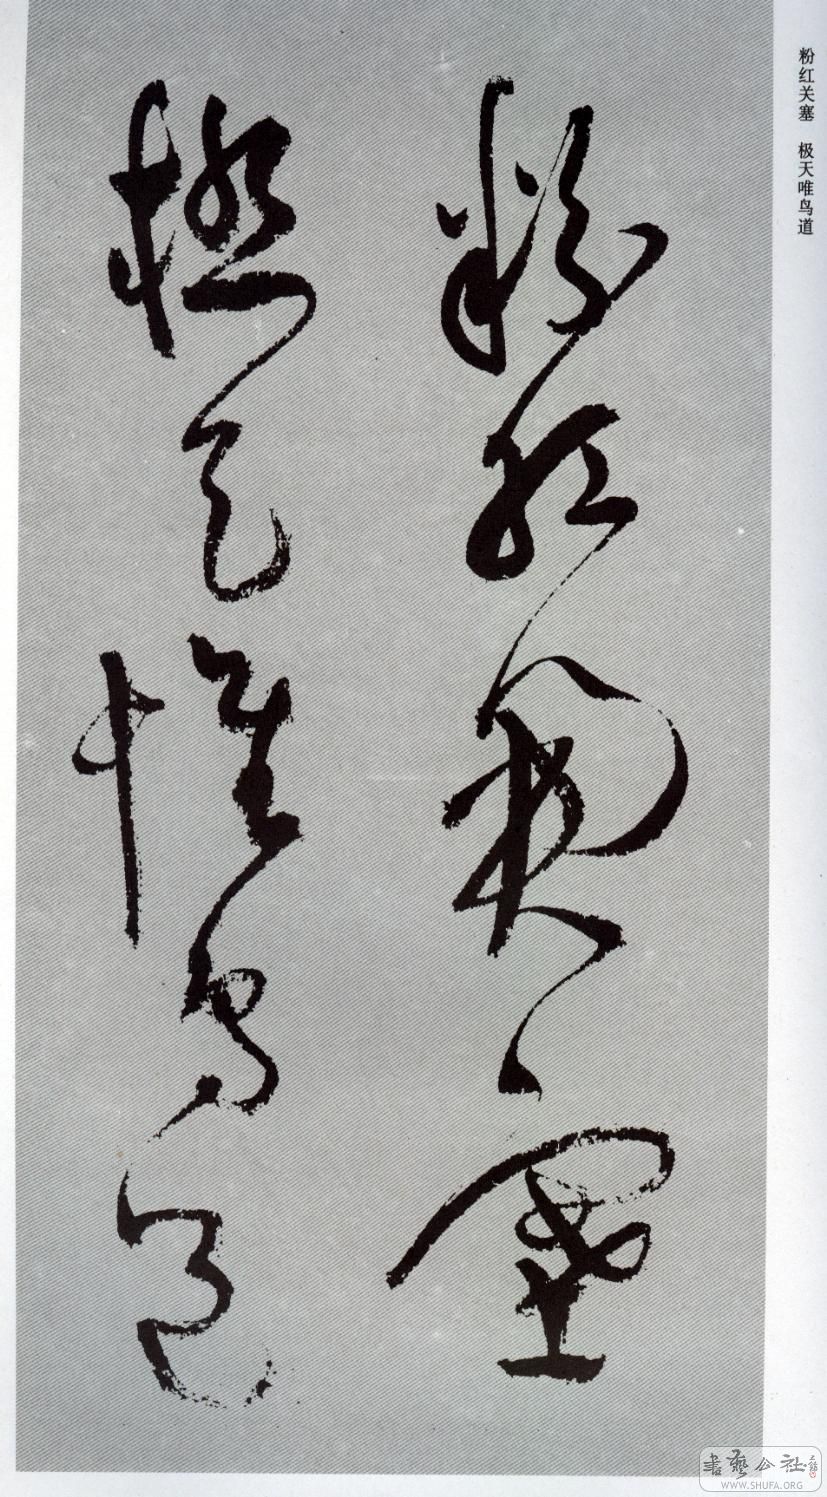 粉红关塞 极天唯鸟道
粉红関塞
极天惟鸟道
書藝公社
WWW.SHUFA.ORG